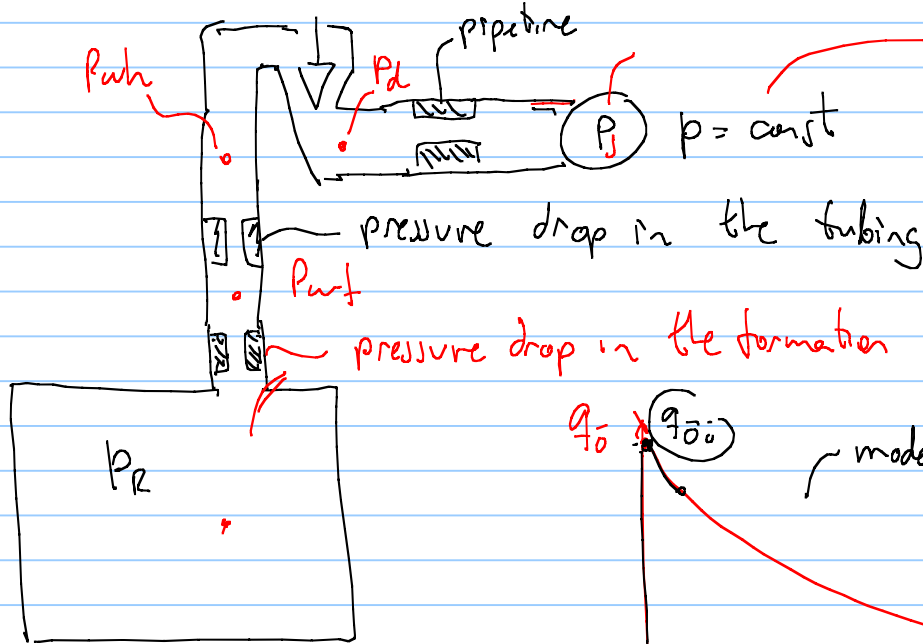 pipeline
Pwh
Pd
Ps
p = const
pressure drop in the tubing
Pwf
pressure drop in the formation
qō
qōi
PR